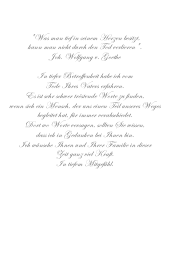 "Was man tief in seinem Herzen besitzt,
kann man nicht durch den Tod verlieren".
Joh. Wolfgang v. Goethe
In tiefer Betroffenheit habe ich vom
Tode Ihres Vaters erfahren.
Es ist sehr schwer tröstende Worte zu finden,
wenn sich ein Mensch, der uns einen Teil unseres Weges
begleitet hat, für immer verabschiedet.
Dort wo Worte versagen, sollten Sie wissen,
dass ich in Gedanken bei Ihnen bin.
Ich wünsche Ihnen und Ihrer Familie in dieser
Zeit ganz viel Kraft.
In tiefem Mitgefühl.